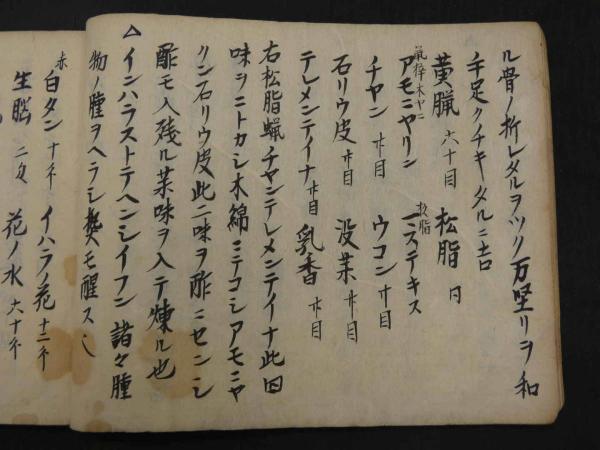 ル骨ノ折レタルヲツク万堅リヲ和
手足クチキタルニ吉
黄臘 六十目 松脂 同
アモニヤリン
松脂
ニステキス
チヤン 廿目 ウコン 廿目
石リウ皮 廿目 没薬 廿目
テレメンテイナ 廿目 乳香 廿目
右松脂蝋チヤンテレメンテイナ此四
味ヲニトカシ木綿ニテコシアモニヤ
リン石リウ皮此二味ヲ酢ニセンシ
酢モ入残ル薬味ヲ入テ煉ル也
△インハラストテヘンシイフン 諸々腫
物ノ腫ヲヘラシ熱モ醒ス
赤
白タン 十 イハラノ花 十二
生脳 二 花ノ水 六十